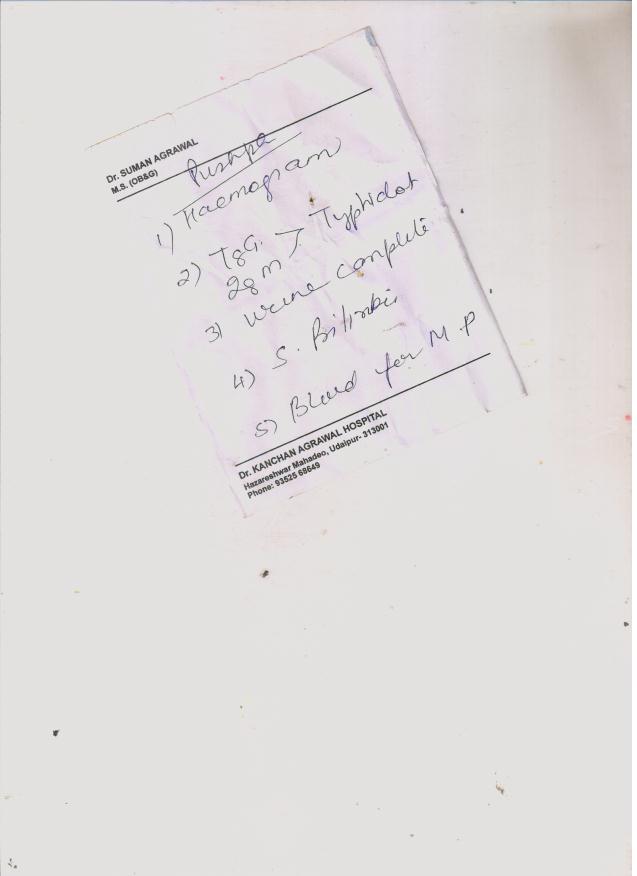 Dr. SUMAN AGRAWAL
M.S. (OB&G)
Pushpa
1) Haemogram
2) IgG. > Typhidot
IgM
3) Urine complete
4) S. Bilirubin
5) Blood for M.P
Dr. KANCHAN AGRAWAL HOSPITAL
Hazareshwar Mahadeo, Udaipur- 313001
Phone: 93525 68649